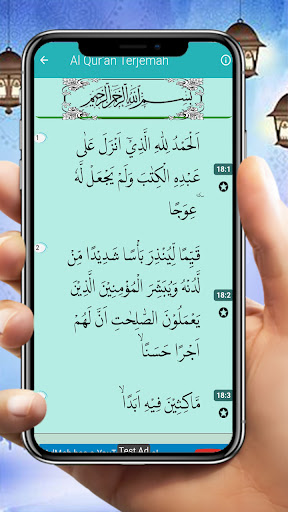 Al Qur'an Terjemah
بِسْمِ اللهِ الرَّحْمٰنِ الرَّحِيْمِ
1
اَلْحَمْدُ لِلّٰهِ الَّذِيْٓ اَنْزَلَ عَلٰى
18:1
عَبْدِهِ الْكِتٰبَ وَلَمْ يَجْعَلْ لَّهٗ
عِوَجًا ۜ
2
قَيِّمًا لِّيُنْذِرَ بَأْسًا شَدِيْدًا مِّنْ
لَّدُنْهُ وَيُبَشِّرَ الْمُؤْمِنِيْنَ الَّذِيْنَ
18:2
يَعْمَلُوْنَ الصّٰلِحٰتِ اَنَّ لَهُمْ
اَجْرًا حَسَنًاۙ
18:3
مَّاكِثِيْنَ فِيْهِ اَبَدًاۙ
Test Ad